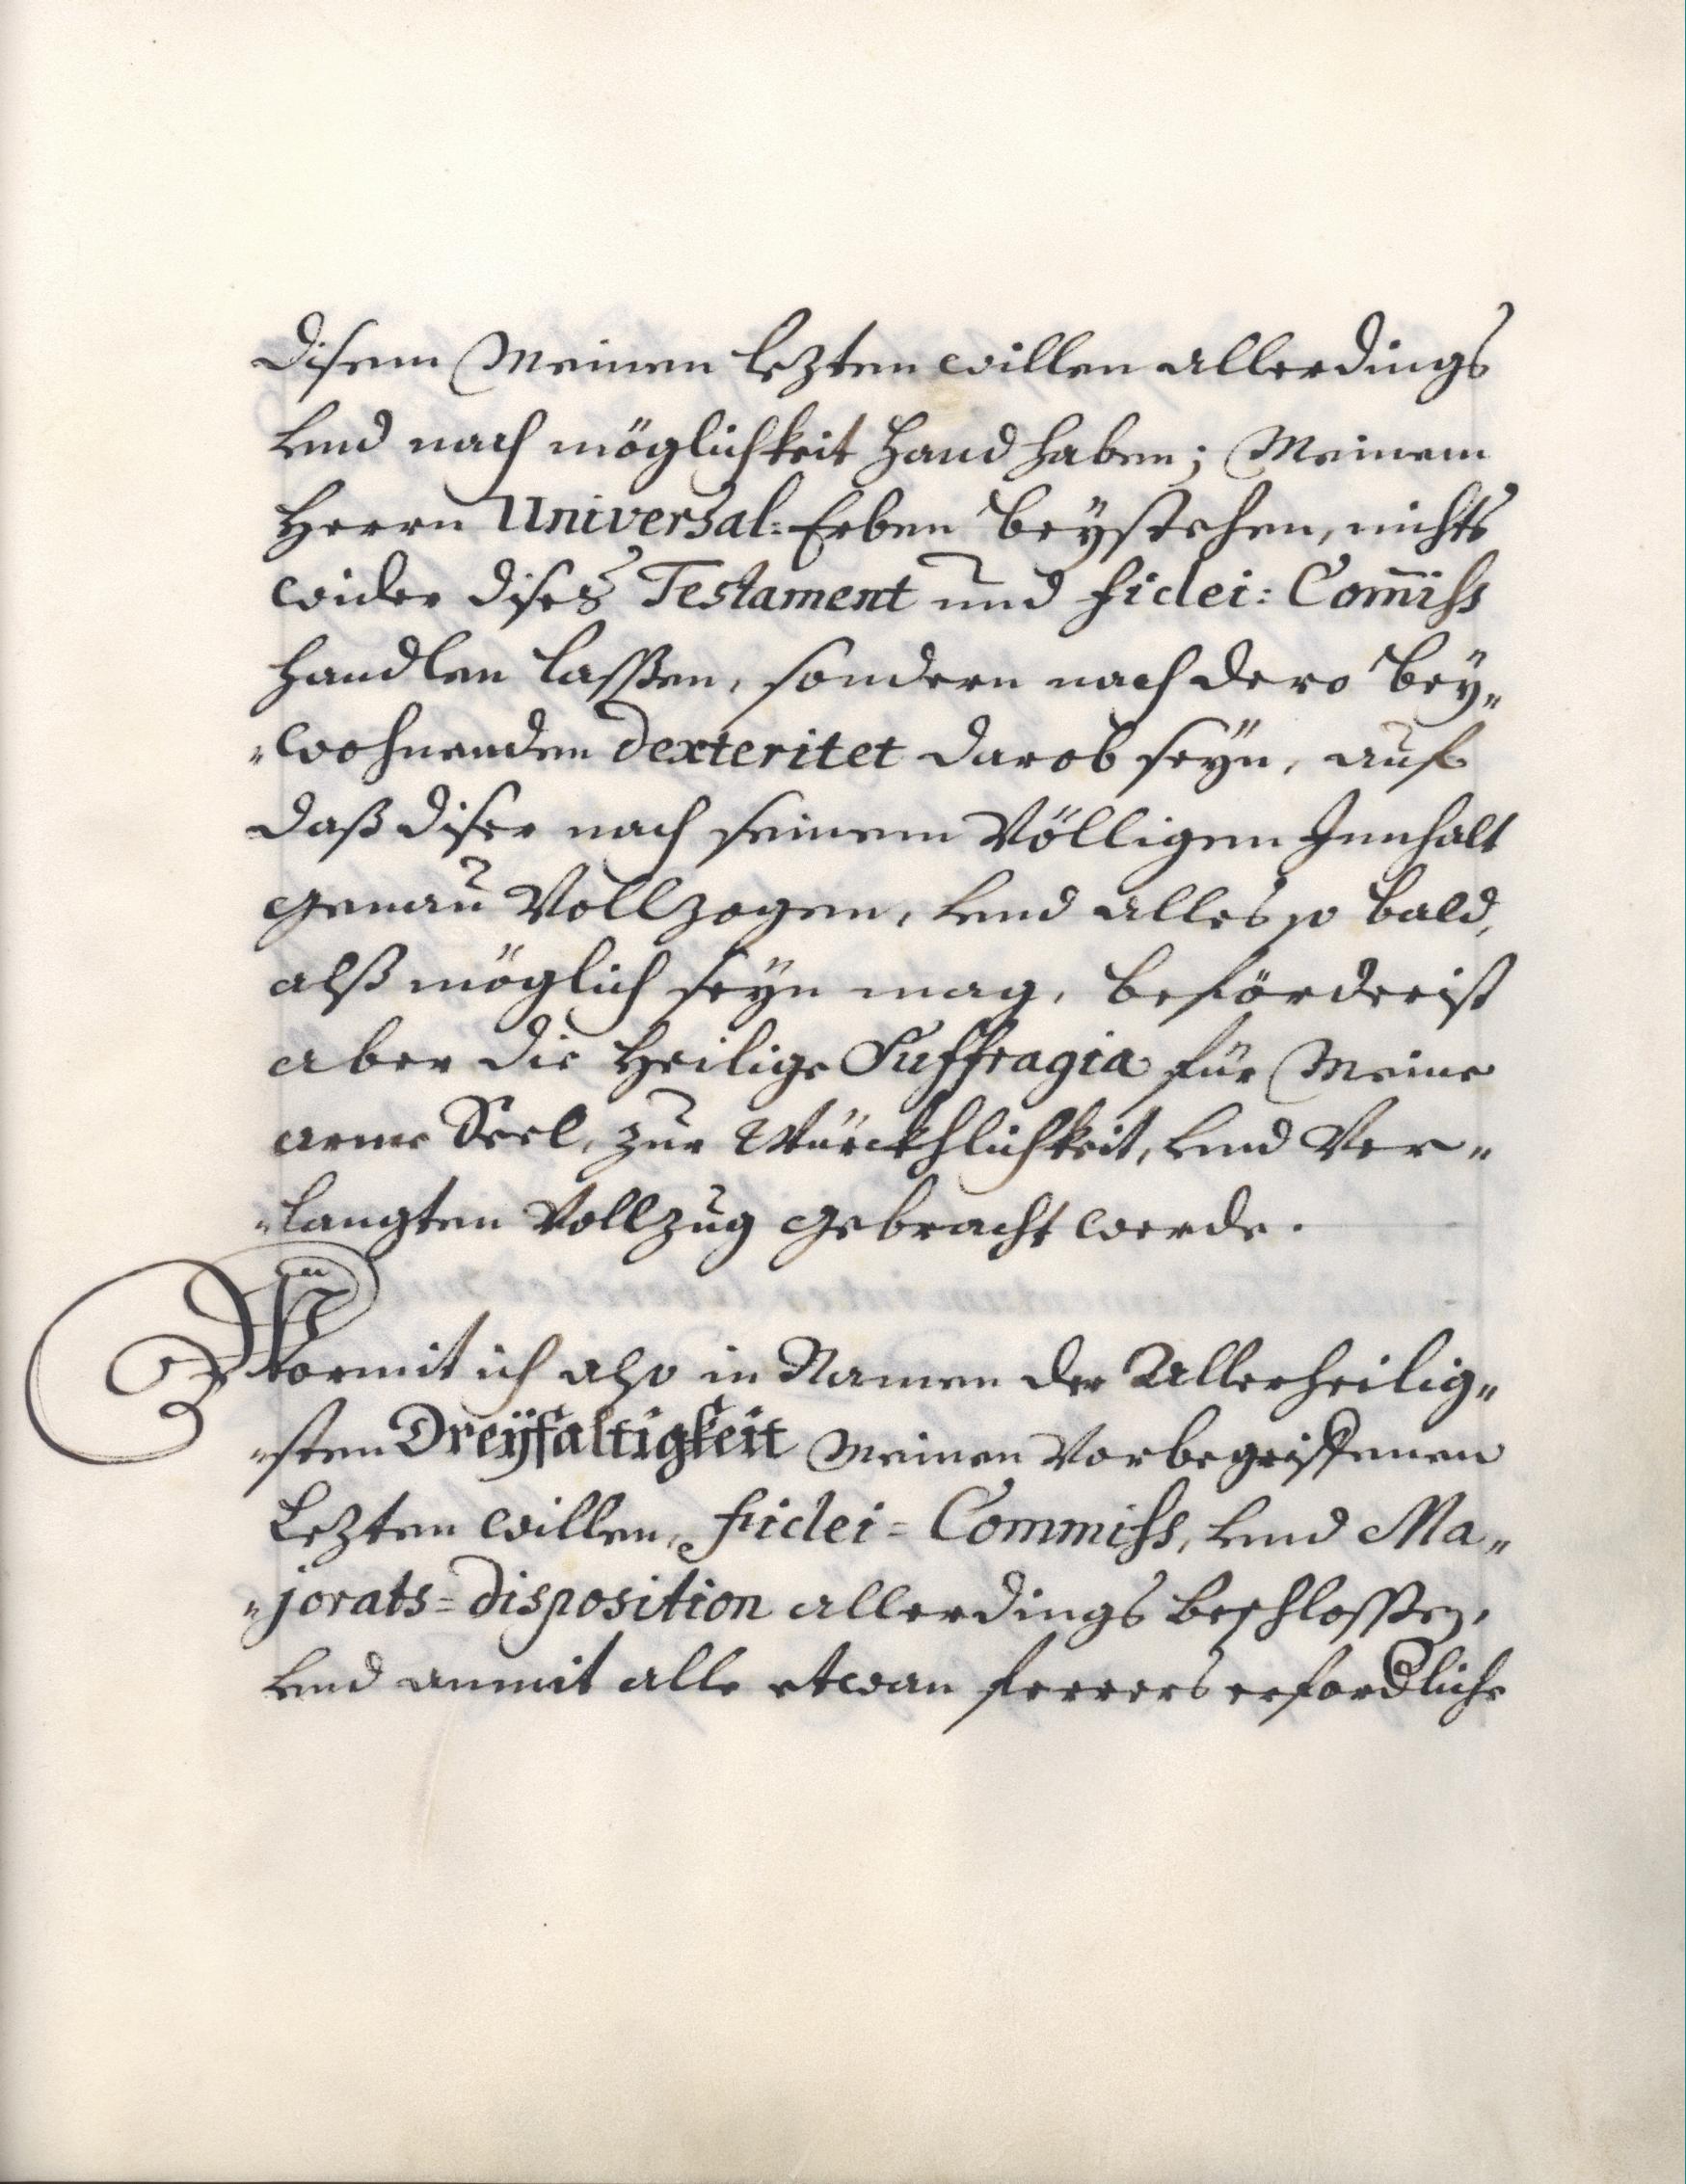 disem Meinen lezten willen allerdings
und nach möglichkeit handhaben; Meinem
Herrn Universal-Erben beystehen, nichts
wider dises Testament und fidei: Com̄iss
handlen lassen, sondern nach dero bey„
„wohnenden dexteritet darob seyn, auf
daß diser nach seinem Völligem Innhalt
genau Vollzogen, und alles so bald,
alß möglich seyn mag, beförderist
aber die Heilige Suffragia für Meine
arme Seel, zur Würckhlichkeit, und Ver„
„langten Vollzug gebracht werde.
Wormit ich also in Namen der Allerheilig„
„sten Dreyfaltigkeit Meinen Vorbegriffenen
Lezten willen, fidei=Commiss, und Ma„
„jorats=disposition allerdings beschlossen,
und anmit alle etwan ferrers erfordliche